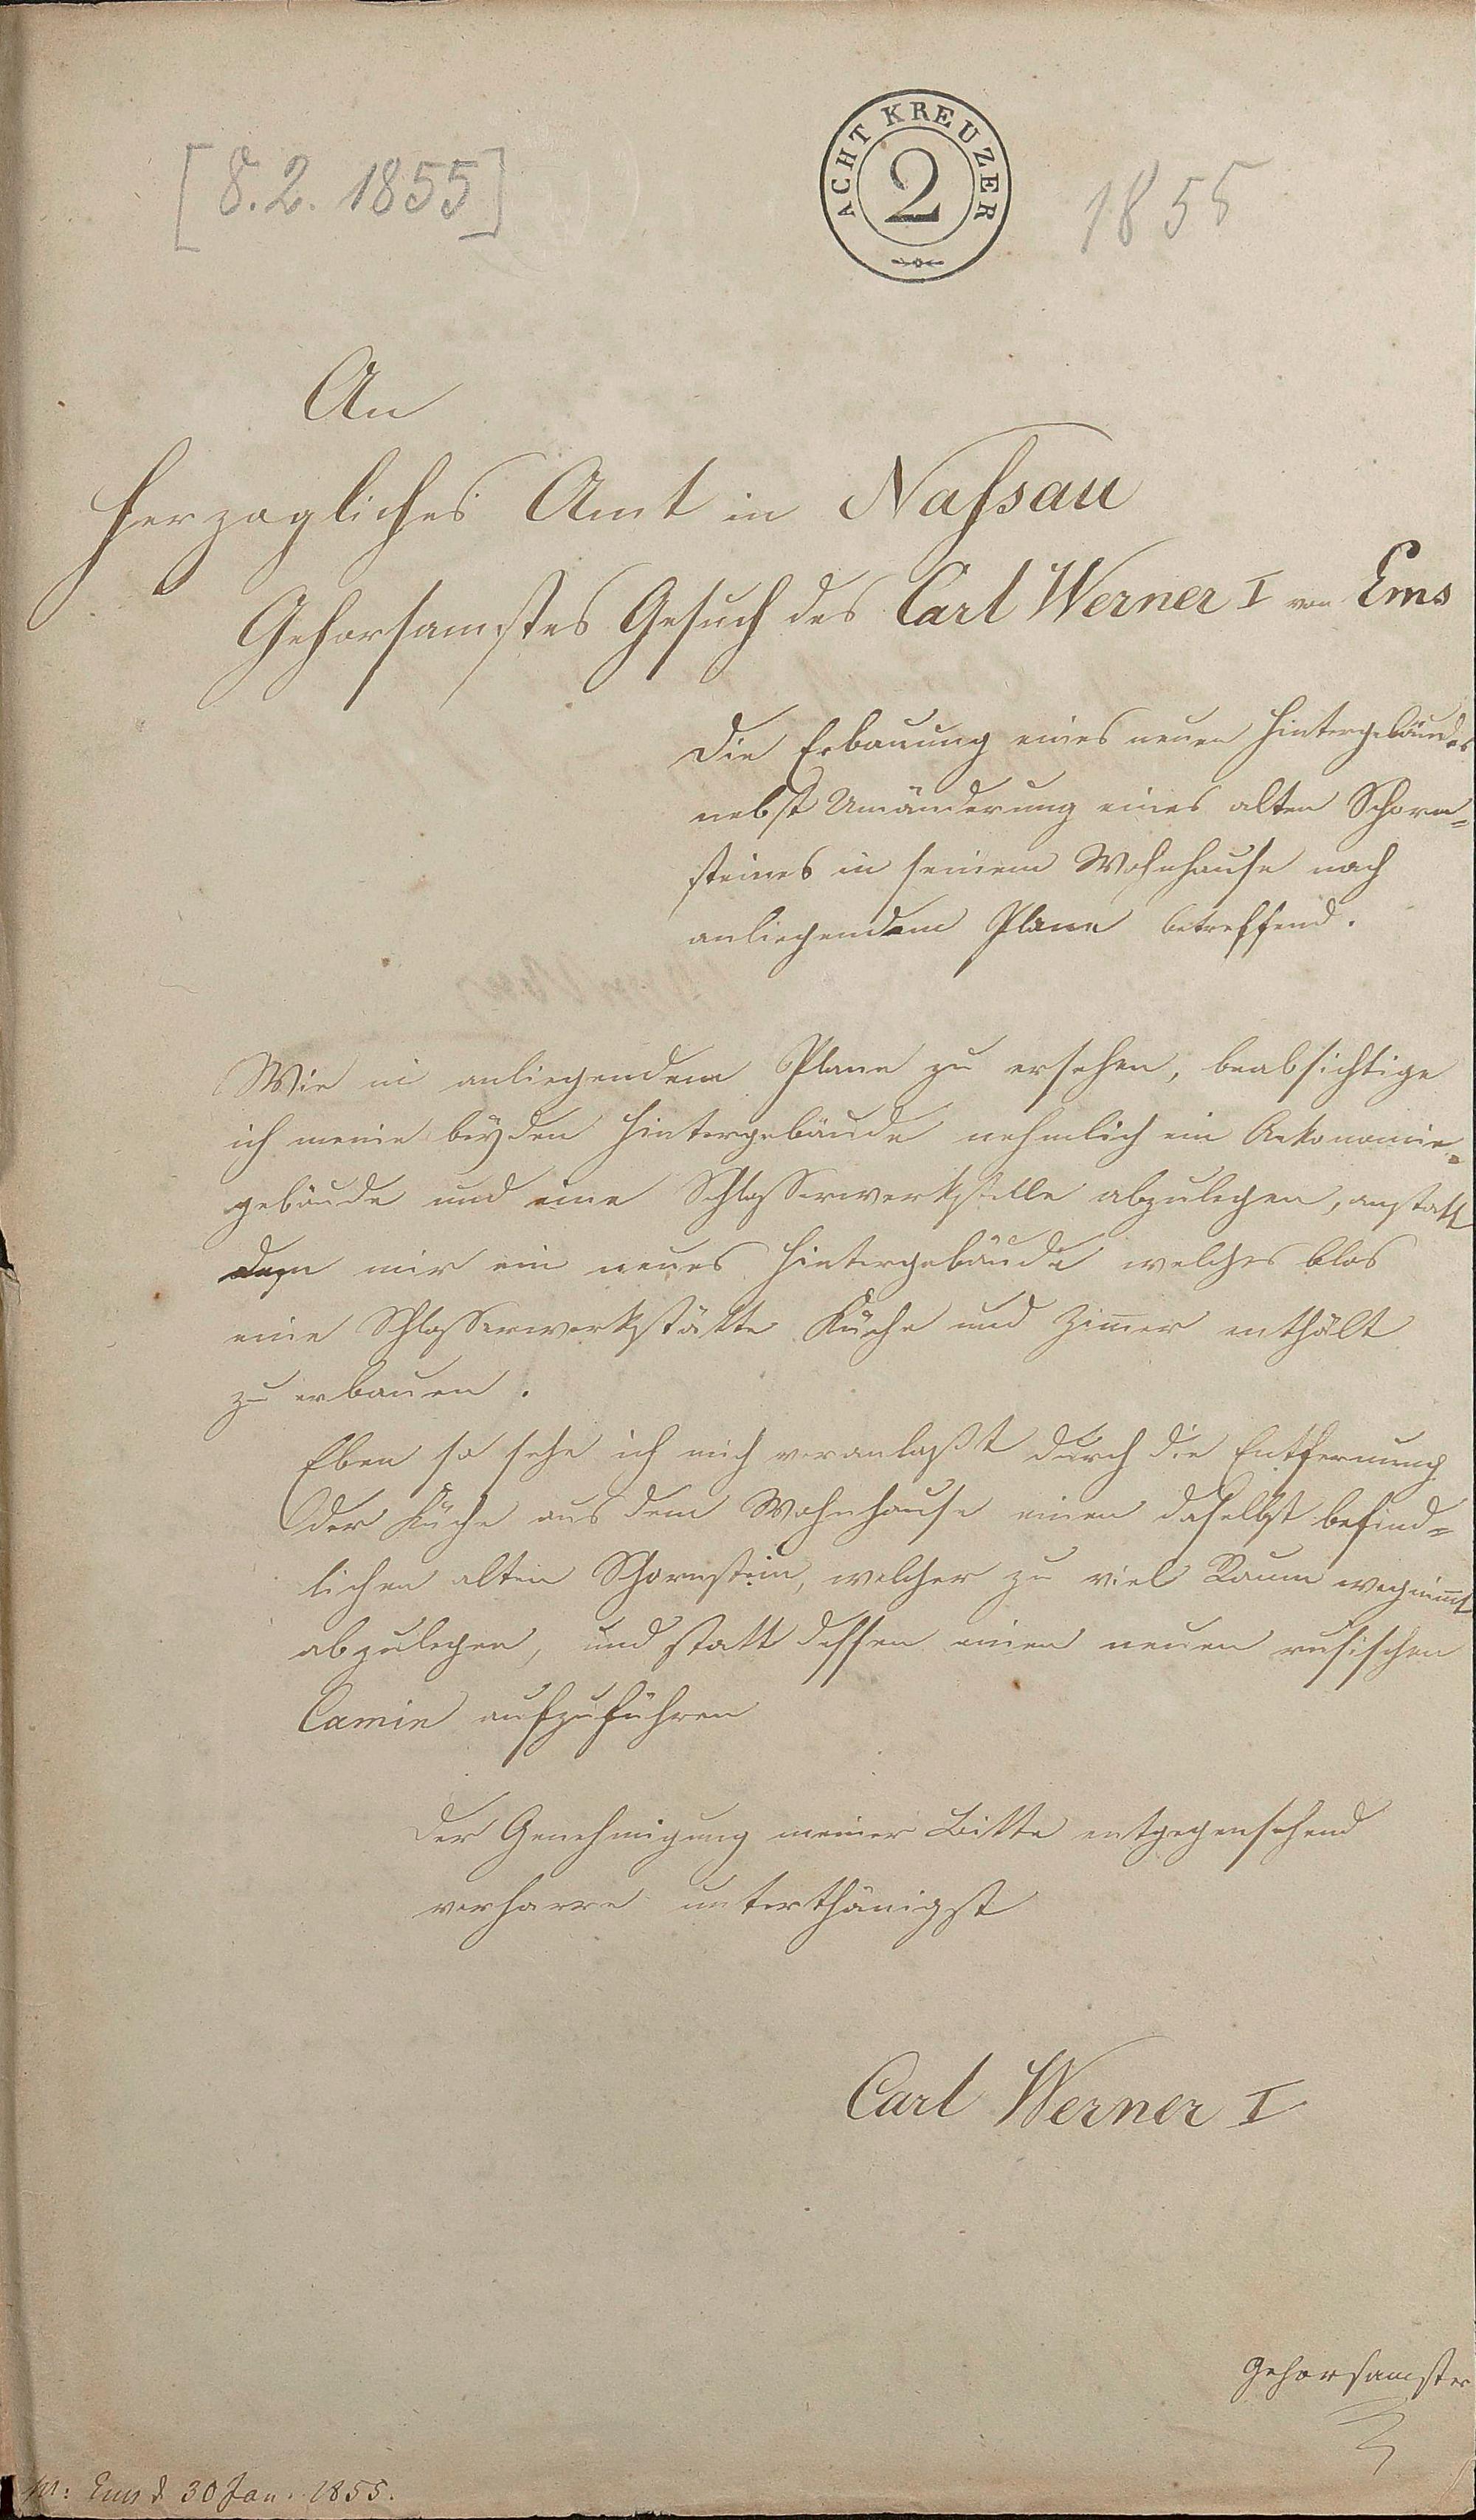 [8.2.1855]
ACHT KREUZER
2
1855
An
Herzogliches Amt in Nassau
Gehorsamstes Gesuch des Carl Werner I von Ems
Die Erbauung eines neuen Hintergebäudes
nebst Umänderung eines alten Schorn=
steines in seinem Wohnhause nach
anliegendem Plane betreffend.
Wie in anliegendem Plane zu ersehen, beabsichtige
ich meine beyden Hintergebäude nehmlich ein Oekonomie=
gebäude und eine Schlosserwerkstelle abzulegen, anstatt
dessen mir ein neues Hintergebäude welches blos
eine Schlosserwerkstätte Küche und Zimer enthält
zu erbauen.
Eben so sehe ich mich veranlaßt durch die Entfernung
der Küche aus dem Wohnhause einen daselbst befind=
lichen alten Schornstein, welcher zu viel Raum wegnimt
abzulegen, und statt dessen einen neuen rusischen
Camin aufzuführen
Der Genehmigung meiner Bitte entgegensehend
verharre unterthänigst
Carl Werner I
Gehorsamster
Ems d 30 Jan. 1855.